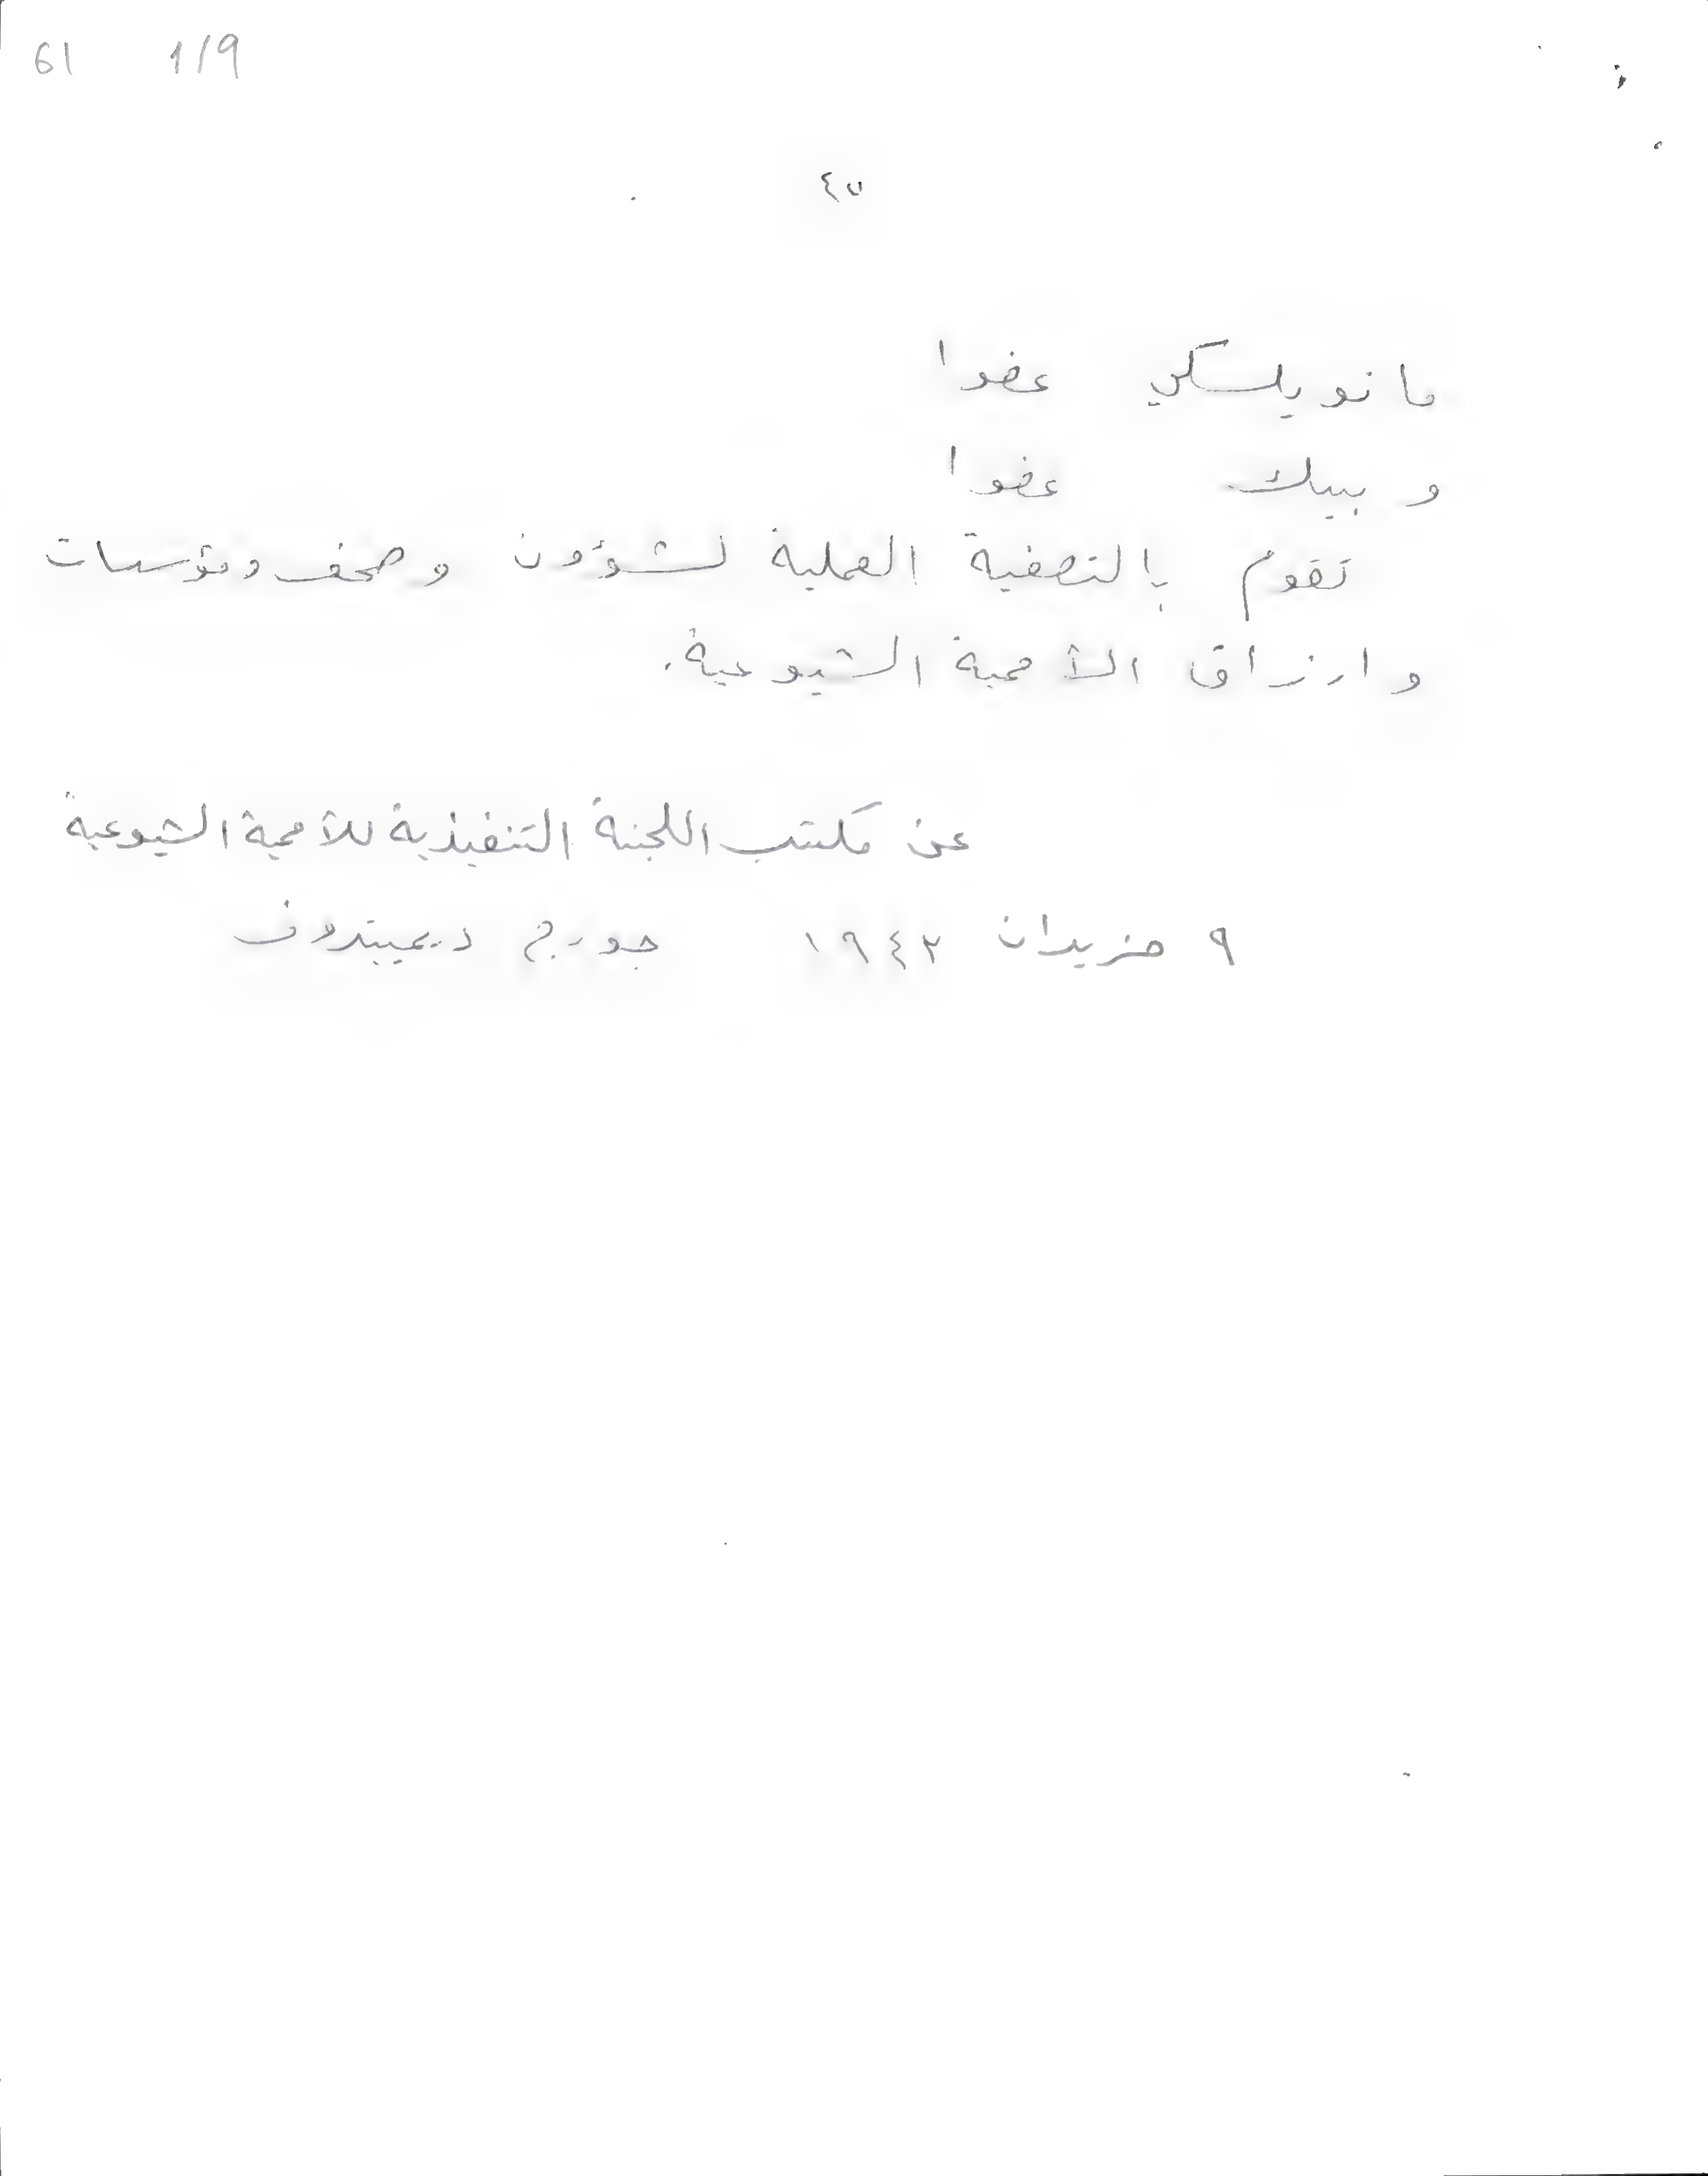 61 1/9
٤٧
مانويلسكي عضوا
و بييك عضوا
تقوم بالتصفية العملية لشؤون وصحف ومؤسسات
وارزاق الأممية الشيوعية.
عن مكتب اللجنة التنفيذية للأممية الشيوعية
٩ حزيران ١٩٤٣ جورج ديميتروف